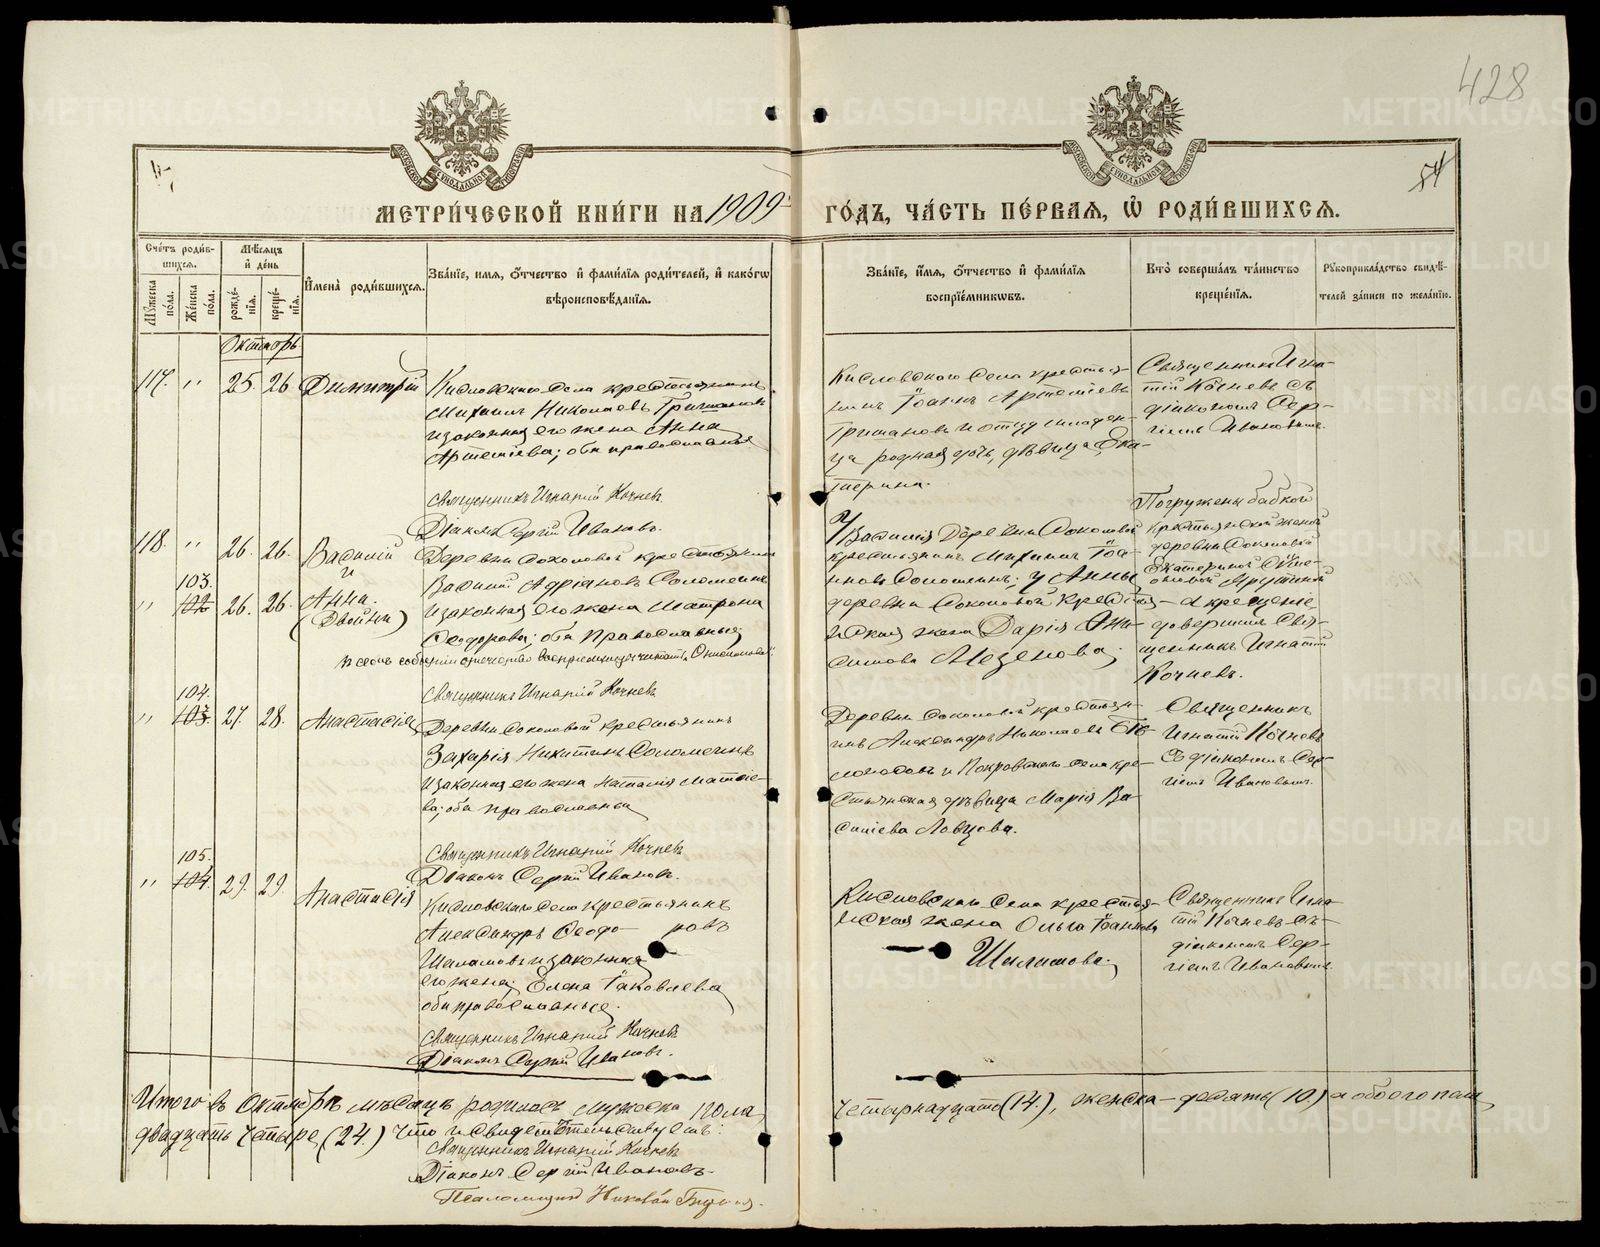 428
54
МЕТРИ́ЧЕСКОЙ КНИ́ГИ НА 1909 ГО́ДЪ, ЧА́СТЬ ПЕ́РВАЯ, Ѡ҆ РОДИ́ВШИХСЯ.
Сче́тъ роди́вшихся.
Мѣ́сяцъ и҆ де́нь
Мꙋ́жеска по́ла.
Же́нска по́ла.
рожде́нїѧ.
креще́нїѧ.
И҆мена̀ роди́вшихсѧ.
Зва́нїе, имѧ, ѻ҆́тчество и҆ фами́лїѧ роди́телей, и҆ како́гѡ вѣроисповѣ́данїѧ.
Зва́нїе, и҆́мѧ, ѻ҆́тчество и҆ фами́лїѧ воспрїе́мникѡвъ.
Кто̀ соверша́лъ та́инство креще́нїѧ.
Рꙋкоприкла́дство свидѣ́телей за́писи по жела́нїю.
Октябрь
117. " 25. 26 Димитрій
Кисловскаго села крестьянинъ
Михаилъ Николаевъ Гришановъ
и законная его жена Анна
Артемiева; оба православные
Священникъ Игнатiй Кочневъ
Дiаконъ Сергiй Ивановъ.
Кисловского села крестья-
нинъ Iоаннъ Артемiевъ
Гришановъ и отцу младен-
ца родная дочь, дѣвица Ека-
терина.
Священникъ Игна-
тiй Кочневъ съ
дiакономъ Сер-
гiемъ Ивановымъ.
118. " 26. 26. Василiй
и
103.
" 102 26. 26. Анна.
(Двойни)
Деревни Соколовой крестьянинъ
Василiй Адрiановъ Соломеинъ
и законная его жена Матрона
Ѳеодорова; оба православные
Священникъ Игнатiй Кочневъ
У Василiя деревни Соколовой
крестьянинъ Михаилъ Iоан-
новъ Соломеинъ; у Анны
деревни Соколовой крестья-
нская жена Дарiя Они-
симова Мезенова.
Погружены бабкой
крестьянской женой
деревни Соколовой
Екатериной
а крещенiе
довершилъ Свя-
щенникъ Игнатiй
Кочневъ.
104.
" 103. 27. 28. Анастасiя
Деревни Соколовой крестьянинъ
Захарiя Никитинъ Соломеинъ
и законная его жена Наталiя Матѳiе-
ва; оба православные
Священникъ Игнатiй Кочневъ
Дiаконъ Сергiй Ивановъ.
Деревни Соколовой крестьян-
инъ Александръ Николаевъ Бѣ-
лобоовъ и Покровскаго села кре-
стьянская дѣвица Марiя Ва-
силiева Ловцова.
Священникъ
Игнатiй Кочневъ
съ дiакономъ Сер-
гiемъ Ивановымъ.
105.
" 104. 29. 29. Анастасiя
Кисловскаго села крестьянинъ
Александръ Ѳеодо- ровъ
Шаламовъ и законная
его жена Елена Iаковлева
оба православные.
Священникъ Игнатiй Кочневъ
Дiаконъ Сергiй Ивановъ.
Кисловскаго села крестья-
нская жена Ольга Iоаннова
Шаламова.
Священникъ Игна-
тiй Кочневъ съ
дiакономъ Сер-
гiемъ Ивановымъ.
Итого въ Октябрѣ мѣсяцѣ родилось мужеска пола четырнадцать (14.), женска — десять (10.) а обоего пола
двадцать четыре (24.) что и свидѣтельствуемъ:
Священникъ Игнатiй Кочневъ
Дiаконъ Сергiй Ивановъ.
Псаломщикъ
METRIKI.GASO-URAL.RU